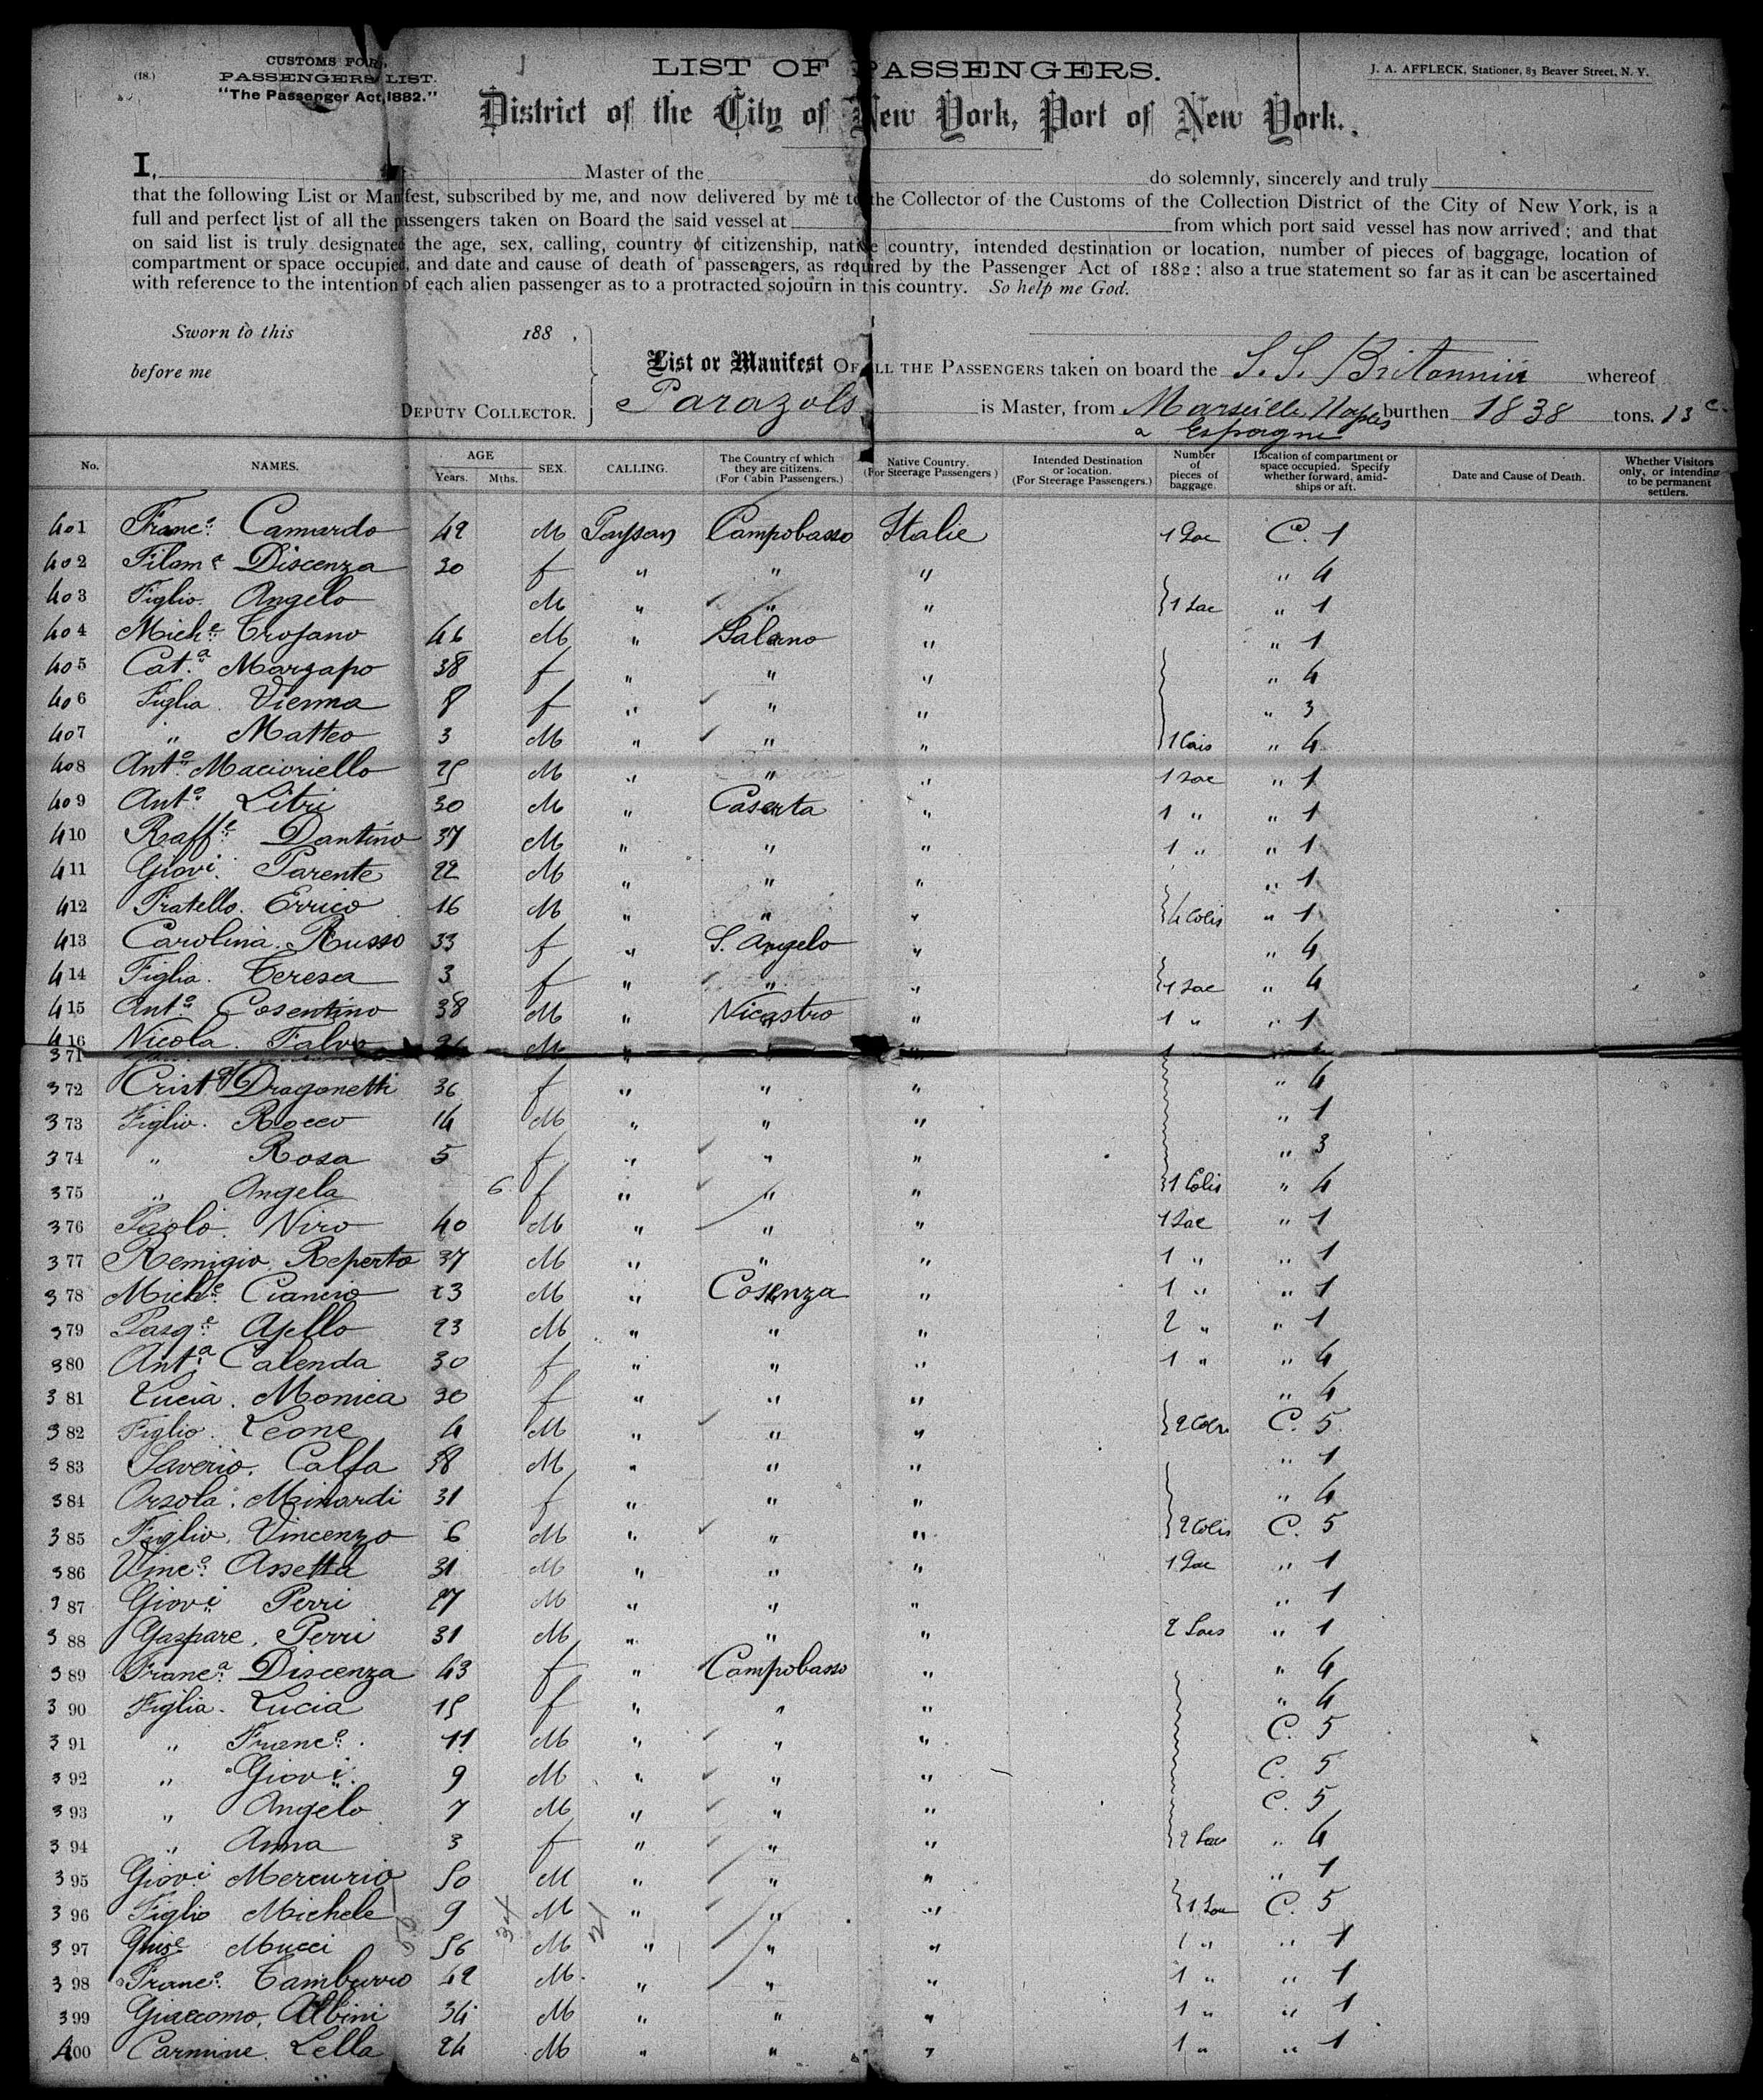 (18.)
CUSTOMS FORM,
PASSENGERS LIST.
"The Passenger Act, 1882."
LIST OF PASSENGERS.
J. A. AFFLECK, Stationer, 83 Beaver Street, N. Y.
District of the City of New York, Port of New York.
I, Master of the do solemnly, sincerely and truly
that the following List or Manifest, subscribed by me, and now delivered by me to the Collector of the Customs of the Collection District of the City of New York, is a
full and perfect list of all the passengers taken on Board the said vessel at from which port said vessel has now arrived; and that
on said list is truly designated the age, sex, calling, country of citizenship, native country, intended destination or location, number of pieces of baggage, location of
compartment or space occupied, and date and cause of death of passengers, as required by the Passenger Act of 1882: also a true statement so far as it can be ascertained
with reference to the intention of each alien passenger as to a protracted sojourn in this country. So help me God.
Sworn to this 188 ,
before me
DEPUTY COLLECTOR.
List or Manifest OF ALL THE PASSENGERS taken on board the S. S. Britannia whereof
Parazols is Master, from Marseille, Naples burthen 1838 tons. 13 c.
a Espagne
No. NAMES. AGE Years. Mths. SEX. CALLING. The Country of which they are citizens. (For Cabin Passengers.) Native Country. (For Steerage Passengers) Intended Destination or location. (For Steerage Passengers.) Number of pieces of baggage. Location of compartment or space occupied. Specify whether forward, amidships or aft. Date and Cause of Death. Whether Visitors only, or intending to be permanent settlers.
401 Franco. Camardo 42 M Paysan Campobasso Italie 1 Sac C. 1
402 Filoma Discenza 30 f " " " " 4
403 Figlio. Angelo M " " " 1 Sac " 1
404 Miche. Trofano 46 M " Salerno " " 1
405 Cata. Marzapo 38 f " " " " 4
406 Figlia. Vienna 8 f " " " " 3
407 " Matteo 3 M " " " 1 Colis " 4
408 Anto. Macioriello 25 M " " " 1 Sac " 1
409 Anto. Litri 30 M " Caserta " 1 " " 1
410 Raffe. Dantino 37 M " " " 1 " " 1
411 Giovi. Parente 22 M " " " " 1
412 Fratello. Errico 16 M " " " 4 Colis " 1
413 Carolina. Russo 33 f " S. Angelo " " 4
414 Figlia. Teresa 3 f " " " 1 Sac " 4
415 Anto. Cosentino 38 M " Nicastro " 1 " " 1
416 Nicola. Falvo M " " 1
371
372 Crista Dragonetti 36 f " " " " 4
373 Figlio. Rocco 14 M " " " " 1
374 " Rosa 5 f " " " " 3
375 " Angela 6 f " " " 1 Colis " 4
376 Paolo. Niro 40 M " " " 1 Sac " 1
377 Remigio. Reperto 37 M " " " 1 " " 1
378 Miche. Ciancio 23 M " Cosenza " 1 " " 1
379 Pasqe. Ajello 23 M " " " 2 " " 1
380 Anta. Calenda 30 f " " " 1 " " 4
381 Lucia. Monica 30 f " " " " 4
382 Figlio. Leone 4 M " " " 2 Colis C. 5
383 Saverio. Calfa 38 M " " " " 1
384 Orsola. Minardi 31 f " " " " 4
385 Figlio. Vincenzo 6 M " " " 2 Colis C. 5
386 Vinco. Assetta 31 M " " " 1 Sac " 1
387 Giovi Perri 27 M " " " " 1
388 Gaspare. Perri 31 M " " " 2 Sacs " 1
389 Franca. Discenza 43 f " Campobasso " " 4
390 Figlia. Lucia 15 f " " " " 4
391 " Franco. 11 M " " " C. 5
392 " Giovi. 9 M " " " C. 5
393 " Angelo 7 M " " " C. 5
394 " Anna 3 f " " " 2 Sacs " 4
395 Giovi Mercurio 50 M " " " " 1
396 Figlio Michele 9 M " " " 1 Sac C. 5
397 Giuse Mucci 56 M " " " 1 " " 1
398 Franco. Tamburro 42 M. " " " 1 " " 1
399 Giacomo. Albini 34 M " " " 1 " " 1
400 Carmine. Lella 24 M " " " 1 " " 1